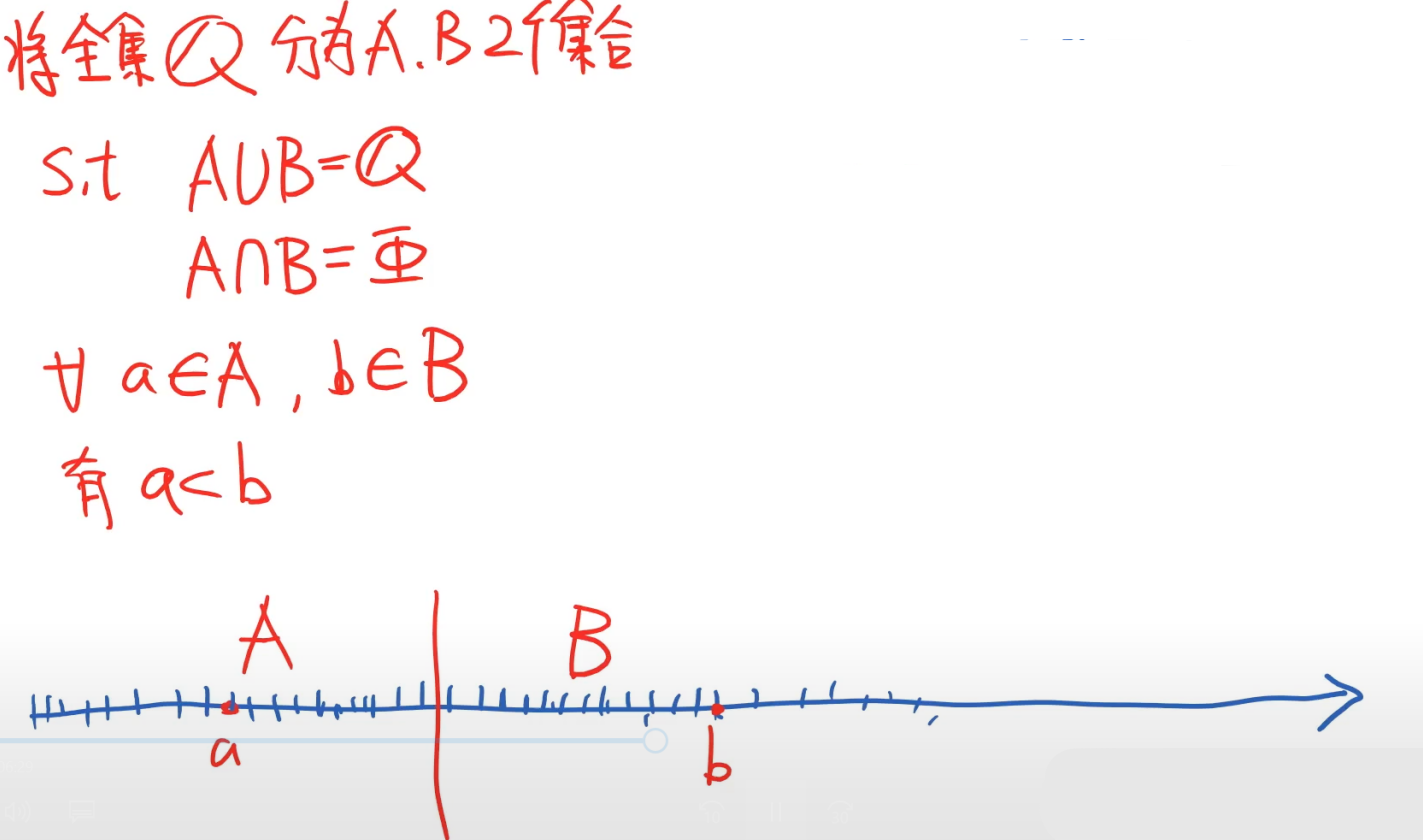 将全集Q 分为A.B 2个集合
s.t A∪B=Q
A∩B=Φ
∀ a∈A , b∈B
有 a<b
A B
a b